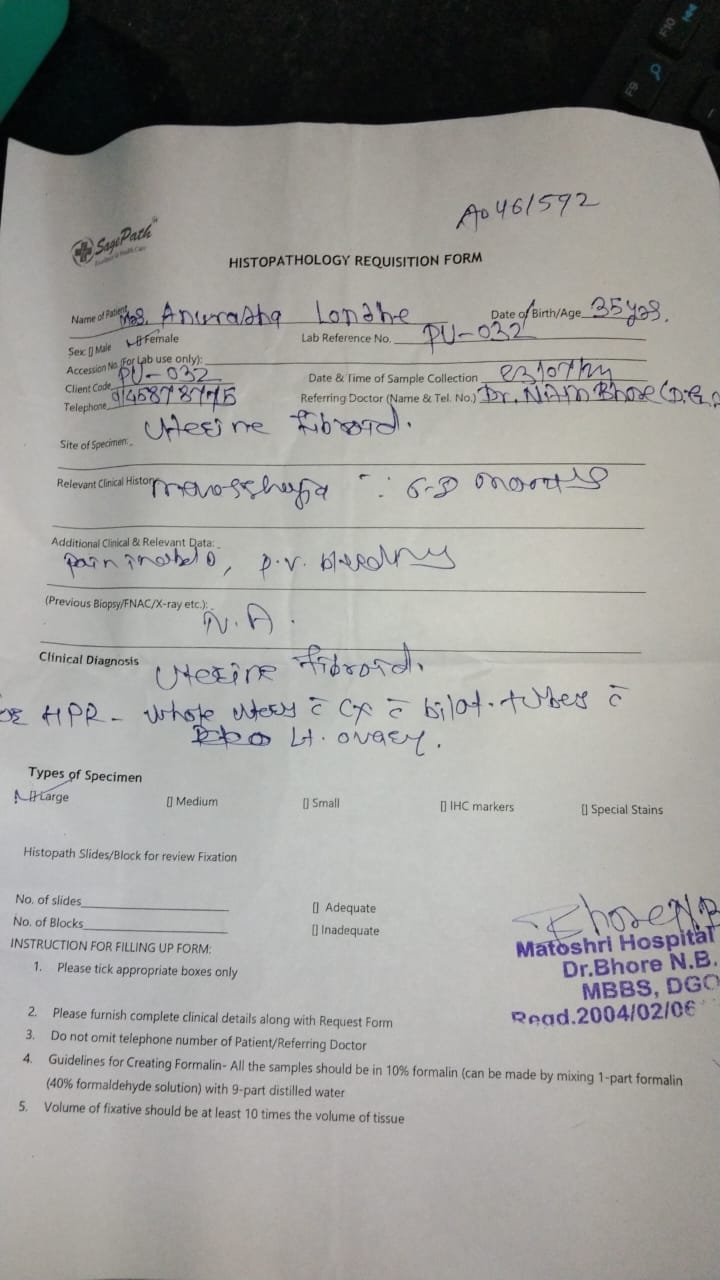 A0461592
SagePath
HISTOPATHOLOGY REQUISITION FORM
Name of Patient Mrs. Anuradha Londhe Date of Birth/Age 35yrs.
Sex: [] Male [] Female Lab Reference No. PU-032
Accession No. (For Lab use only):
Client Code PU-032 Date & Time of Sample Collection
Telephone Referring Doctor (Name & Tel. No.) Dr. Bhore
Uterine fibroid.
Site of Specimen:
Relevant Clinical History 6-8 months
Additional Clinical & Relevant Data:
pain in, p.v. bleeding
(Previous Biopsy/FNAC/X-ray etc.):
N.A.
Clinical Diagnosis Uterine fibroid.
HPR - whole uterus c̄ cx c̄ bilat. tubes c̄
Lt. ovary.
Types of Specimen
[] Large [] Medium [] Small [] IHC markers [] Special Stains
Histopath Slides/Block for review Fixation
No. of slides [] Adequate
No. of Blocks [] Inadequate
INSTRUCTION FOR FILLING UP FORM:
Bhore N.B
Matoshri Hospital
Dr.Bhore N.B.
MBBS, DGO
Read.2004/02/06
1. Please tick appropriate boxes only
2. Please furnish complete clinical details along with Request Form
3. Do not omit telephone number of Patient/Referring Doctor
4. Guidelines for Creating Formalin- All the samples should be in 10% formalin (can be made by mixing 1-part formalin
(40% formaldehyde solution) with 9-part distilled water
5. Volume of fixative should be at least 10 times the volume of tissue